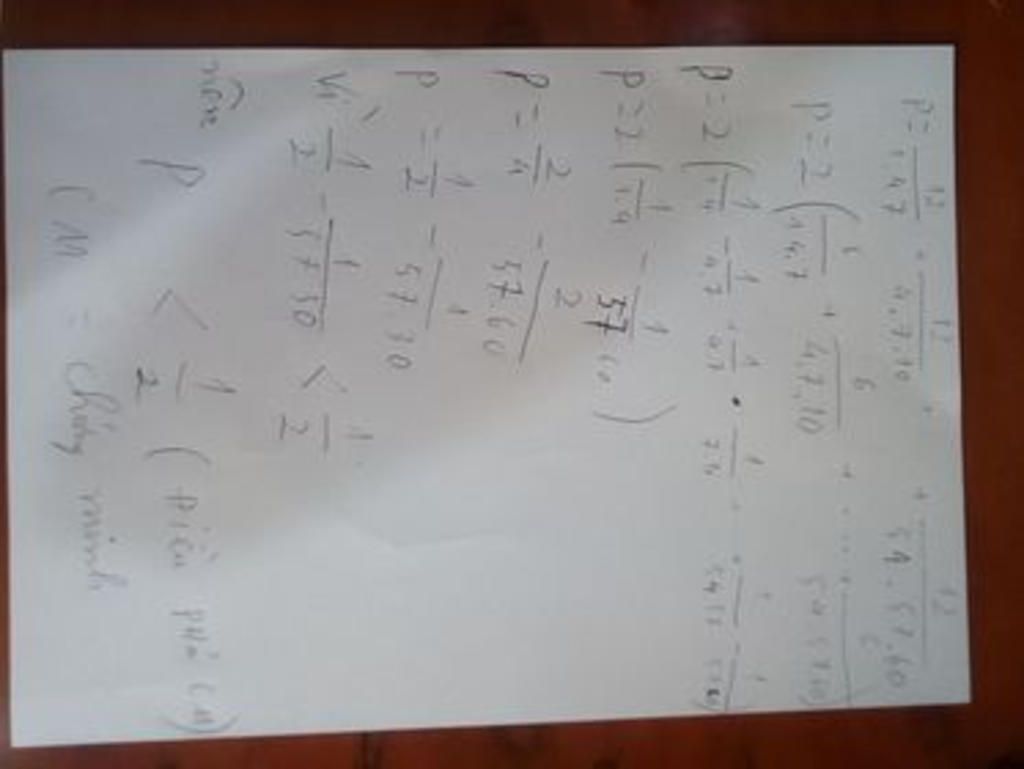 P = 12/1.4.7 + 12/4.7.10 + ... + 12/54.57.60
P = 2 ( 6/1.4.7 + 6/4.7.10 + ..... + 6/54.57.60 )
P = 2 ( 1/1.4 - 1/4.7 + 1/4.7 - 1/7.10 + ... + 1/54.57 - 1/57.60 )
P = 2 ( 1/1.4 - 1/57.60 )
P = 2/4 - 2/57.60
P = 1/2 - 1/57.30
Vì 1/2 - 1/57.30 < 1/2
nên P < 1/2 ( Điều phải CM )
CM : chứng minh